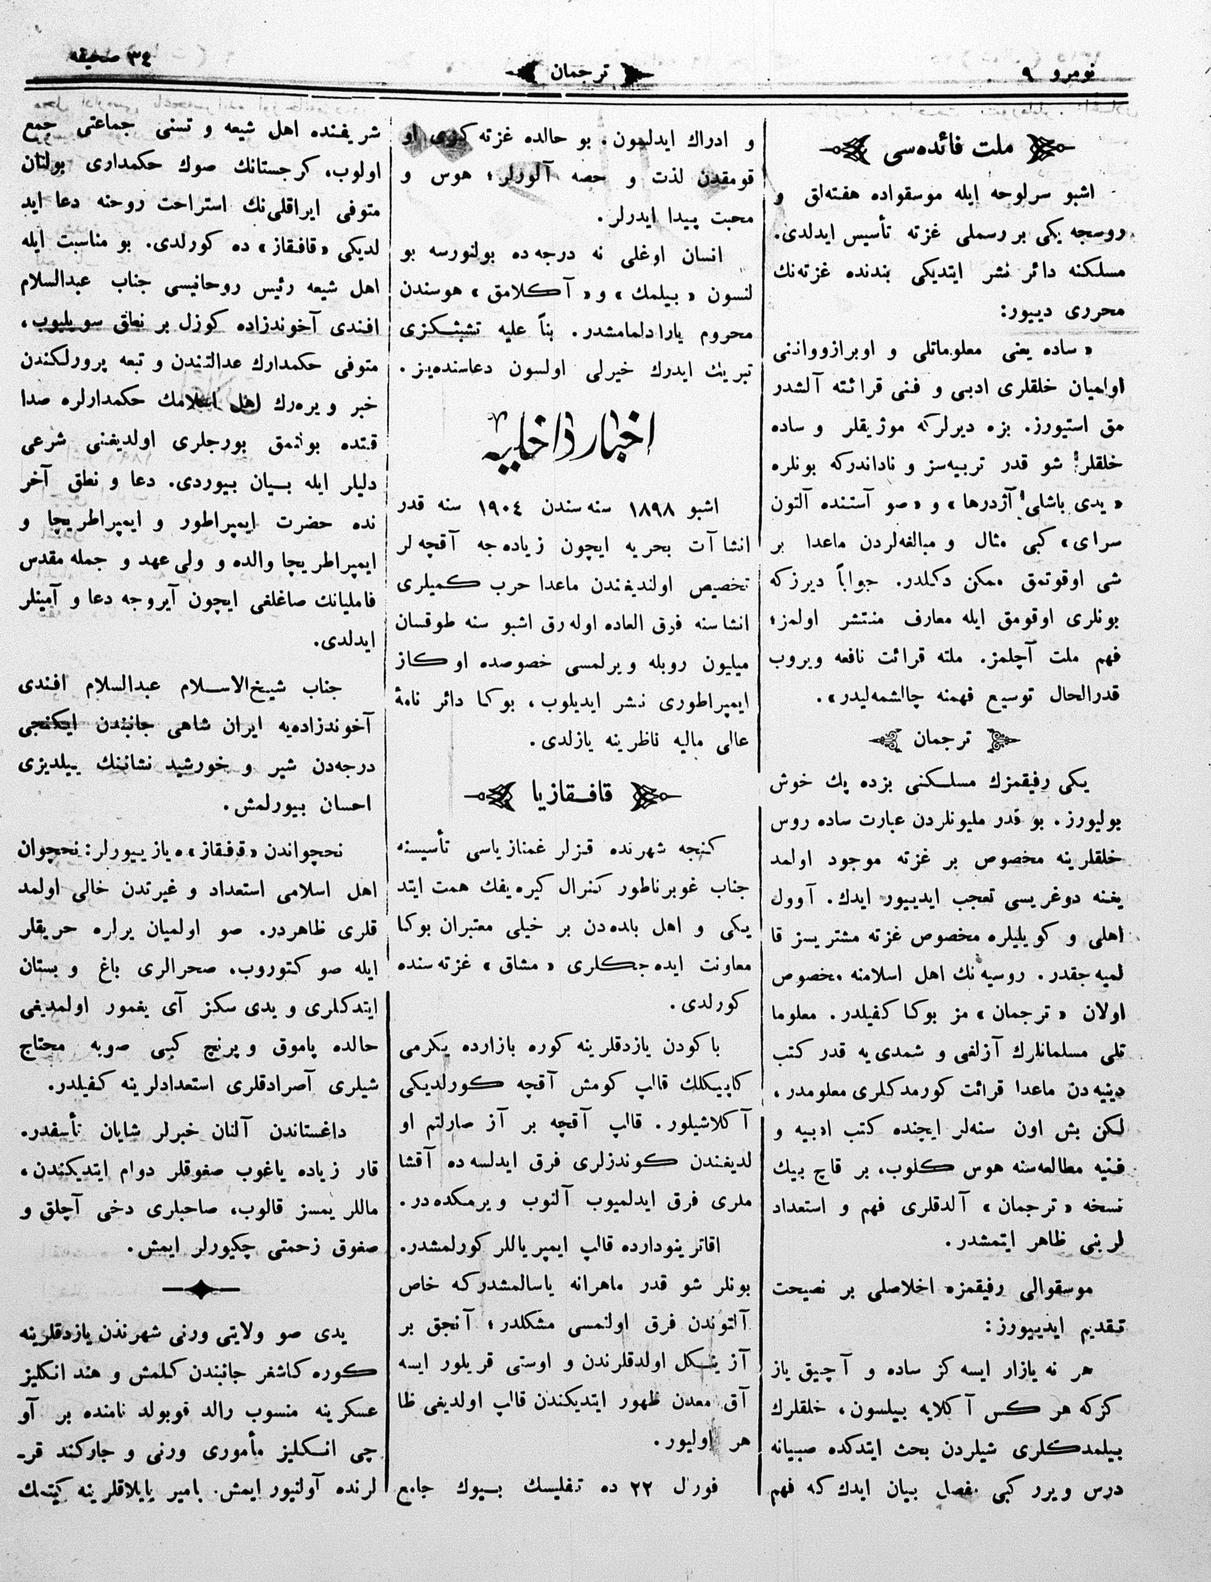 نومرو ۹
ترجمان
۳٤ صحيفه
ملت فائده‌سی
اشبو سرلوحه ايله موسقواده هفته‌لق و
روسجه يكی بر رسملی غزته تأسيس ايدلدی.
مسلكنه دائر نشر ايتديكی بندنده غزته‌نك
محرری ديیور:
« ساده يعنی معلوماتلی و اوبرازوواننی
اولميان خلقلری ادبی و فنی قرائته آلشدر
مق استيورز. بزه ديرلركه موژيقلر و ساده
خلقلر! شو قدر تربيه‌سز و ناداندركه بونلره
« يدی باشلی آژدرها » و « صو آستنده آلتون
سرای » كبی مثال و مبالغه‌لردن ماعدا بر
شی اوقوتمق ممكن دكلدر. جواباً ديرزكه
بونلری اوقومق ايله معارف منتشر اولمز؛
فهم ملت آچلمز. ملته قرائت نافعه ويروب
قدرالحال توسيع فهمنه چالشمه‌ليدر ».
ترجمان
يكی رفيقمزك مسلكنی بزده پك خوش
بوليورز. بو قدر مليونلردن عبارت ساده روس
خلقلرينه مخصوص بر غزته موجود اولمد
يغنه دوغريسی تعجب ايدييور ايدك. آوول
اهلی و كويليلره مخصوص غزته مشتريسز قا
لميه جقدر. روسيه نك اهل اسلامنه مخصوص
اولان « ترجمان » مز بوكا كفيلدر. معلوما
تلی مسلمانلرك آزلغی و شمدی يه قدر كتب
دينيه دن ماعدا قرائت كورمدكلری معلومدر،
لكن بش اون سنه‌لر ايچنده كتب ادبيه و
فنيه مطالعه‌سنه هوس كلوب، بر قاچ بيك
نسخه « ترجمان » آلدقلری فهم و استعداد
لرينی ظاهر ايتمشدر.
موسقوالی رفيقمزه اخلاصلی بر نصيحت
تقديم ايدييورز:
هر نه يازار ايسه كز ساده و آچيق ياز
كزكه هر كس آكلايه بيلسون، خلقلرك
بيلمدكلری شيلردن بحث ايتدكده صبيانه
درس ويرر كبی مفصل بيان ايدك كه فهم
و ادراك ايدلسون. بو حالده غزته كزی او
قومقدن لذت و حصه آلورلر؛ هوس و
محبت پيدا ايدرلر.
انسان اوغلی نه درجه ده بولنورسه بو
لنسون « بيلمك » و « آكلامق » هوسندن
محروم يارادلمامشدر. بناً عليه تشبثكزی
تبريك ايدرك خيرلی اولسون دعاسنده‌يز.
اخبار داخليه
اشبو ۱۸۹۸ سنه سندن ۱۹۰٤ سنه قدر
انشاآت بحريه ايچون زياده جه آقچه لر
تخصيص اولنديغندن ماعدا حرب كميلری
انشاسنه فرق العاده اوله رق اشبو سنه طوقسان
ميليون روبله ويرلمسی خصوصده اوكاز
ايمپراطوری نشر ايديلوب، بوكا دائر نامهٔ
عالی ماليه ناظرينه يازلدی.
قافقازيا
كنجه شهرنده قزلر غمنازياسی تأسيسنه
جناب غوبرناطور كنرال كيره‌يفك همت ايتد
يكی و اهل بلده دن بر خيلی معتبران بوكا
معاونت ايده جكلری « مشاق » غزته سنده
كورلدی.
باكودن يازدقلرينه كوره بازارده يكرمی
كاپيكلك قالپ كومش آقچه كورلديكی
آكلاشيلور. قالپ آقچه بر آز صارلتم او
لديغندن كوندزلری فرق ايدلسه ده آقشا
ملری فرق ايدلميوب آلنوب ويرمكده در.
اقاترينودارده قالپ ايمپرياللر كورلمشدر.
بونلر شو قدر ماهرانه ياسالمشدركه خاص
آلتوندن فرق اولنمسی مشكلدر؛ آنجق بر
آز ينكل اولدقلرندن و اوستی قريلور ايسه
آق معدن ظهور ايتديكندن قالپ اولديغی ظا
هر اوليور.
فورل ۲۲ ده تفليسك بيوك جامع
شريفنده اهل شيعه و تسنی جماعتی جمع
اولوب، كرجستانك صوك حكمداری بولنان
متوفی ايراقلی‌نك استراحت روحنه دعا ايد
لديكی « قافقاز » ده كورلدی. بو مناسبت ايله
اهل شيعه رئيس روحانيسی جناب عبدالسلام
افندی آخوندزاده كوزل بر نطق سويليوب،
متوفی حكمدارك عدالتندن و تبعه پرورلكندن
خبر ويره‌رك اهل اسلامك حكمدارلره صدا
قتده بولنمق بورجلری اولديغنی شرعی
دليلر ايله بيان بيوردی. دعا و نطق آخر
نده حضرت ايمپراطور و ايمپراطريچا و
ايمپراطريچا والده و ولی عهد و جمله مقدس
فاملیانك صاغلغی ايچون آيروجه دعا و آمينلر
ايدلدی.
جناب شيخ‌الاسلام عبدالسلام افندی
آخوندزاده‌يه ايران شاهی جانبندن ايكنجی
درجه‌دن شير و خورشيد نشاننك ييلديزی
احسان بيورلمش.
نحچواندن « قفقاز » ه يازييورلر: نحچوان
اهل اسلامی استعداد و غيرتدن خالی اولمد
قلری ظاهردر. صو اولميان يرلره حريقلر
ايله صو كتوروب، صحرالری باغ و بستان
ايتدكلری و يدی سكز آی يغمور اولمديغی
حالده پاموق و پرنچ كبی صويه محتاج
شيلری آصرادقلری استعدادلرينه كفيلدر.
داغستاندن آلنان خبرلر شايان تأسفدر.
قار زياده ياغوب صغوقلر دوام ايتديكندن،
ماللر يمسز قالوب، صاحبلری دخی آچلق و
صغوق زحمتی چكيورلر ايمش.
يدی صو ولايتی ورنی شهرندن يازدقلرينه
كوره كاشغر جانبندن كلمش و هند انكليز
عسكرينه منسوب رالد قوبولد نامنده بر آو
چی انكليز مأموری ورنی و جاركند قر-
لرنده آولنيور ايمش. پامير يايلاقلرينه كيتمك